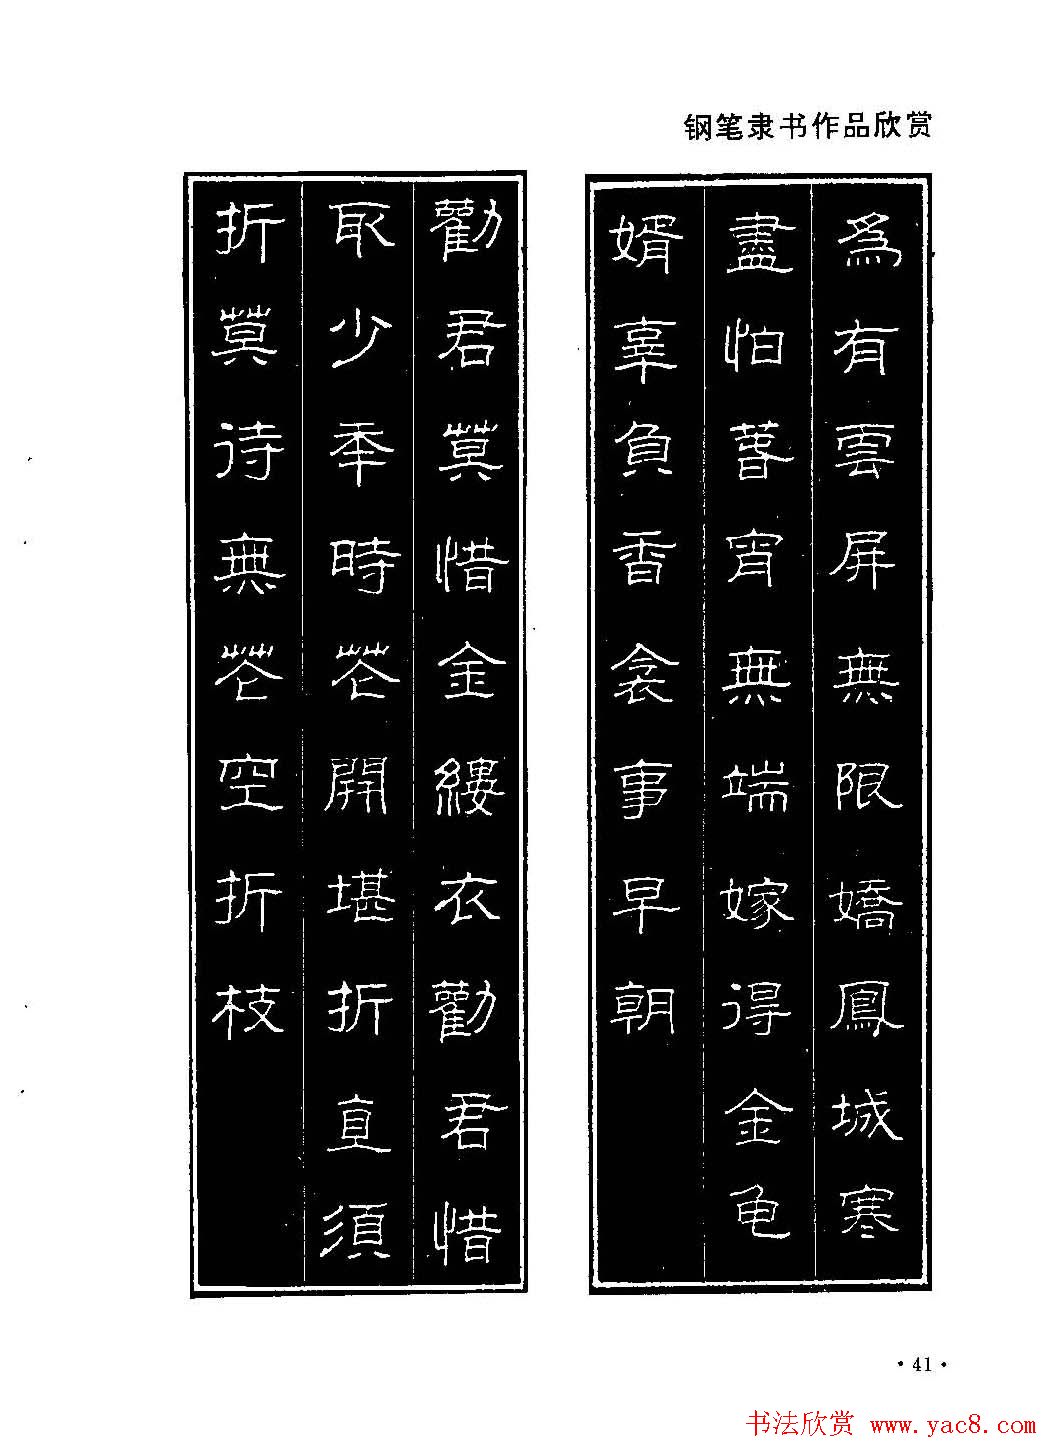 钢笔隶书作品欣赏
為有雲屏無限嬌鳳城寒
盡怕春宵無端嫁得金龟
婿辜負香衾事早朝
勸君莫惜金縷衣勸君惜
取少年時花開堪折直須
折莫待無花空折枝
·41·
书法欣赏 www.yac8.com